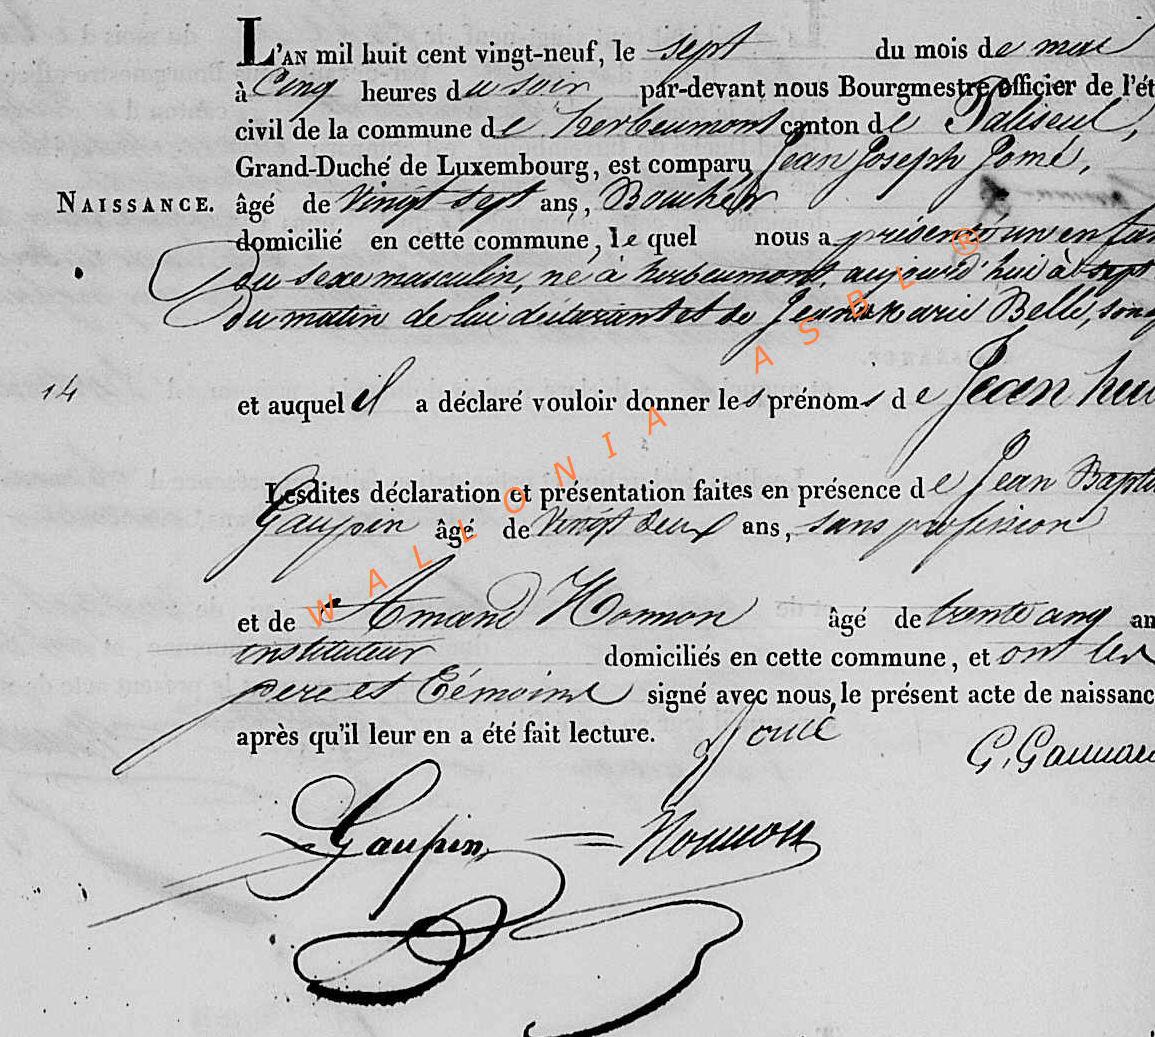 L'AN mil huit cent vingt-neuf, le sept du mois de mai
à Cinq heures du soir par-devant nous Bourgmestre officier de l'ét
civil de la commune de herbeumont canton de Paliseul,
Grand-Duché de Luxembourg, est comparu Jean Joseph Jomé,
NAISSANCE. âgé de vingt sept ans, Boucher
domicilié en cette commune, le quel nous a présenté un enfan
du sexe masculin, né à herbeumont, aujourd'hui à sept
du matin de lui déclarant et de Jeanne Marie Bellé, son
14 et auquel il a déclaré vouloir donner les prénoms de Jean
Lesdites déclaration et présentation faites en présence de Jean Baptis
Gaupin âgé de vingt deux ans, sans profession
et de Amand Honnon âgé de trente cinq an
instituteur domiciliés en cette commune, et ont les
père et témoins signé avec nous, le présent acte de naissanc
après qu'il leur en a été fait lecture. Jomé
Gaupin
WALLONIA ASBL ®